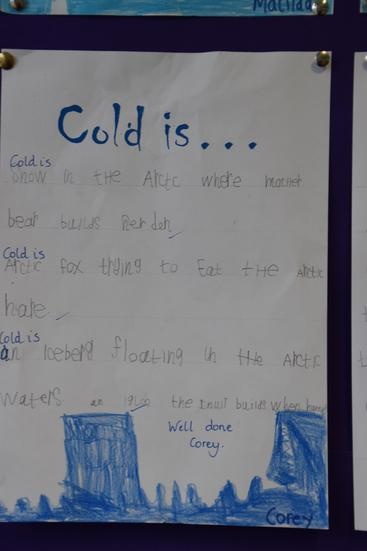 Matilda
Cold is...
Cold is
Snow in tHe Arctic where mother
bear builds Her den
Cold is
Arctic fox trying to Eat tHe arctic
hare.
Cold is
an Iceberg floating in the Arctic
Waters. an igloo the Inuit builds when
Well done
Corey.
Corey